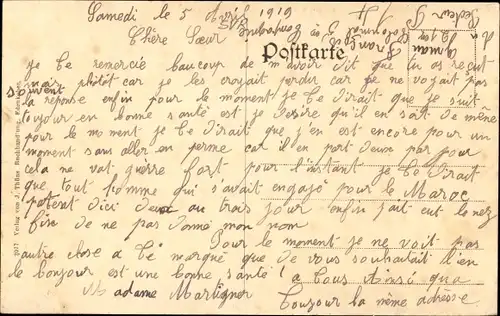 Samedi le 5 Avril 1919
Chère Sœur
Postkarte
je te remercie beaucoup de m'avoir dit que tu as reçut
mais photot car je les croyait perdu car je ne voyait pas
souvent
la reponse enfin pour le moment je te dirait que je suit
toujour en bonne santé est je desire qu'il en soit de même
pour le moment je te dirait que j'en est encore pour un
moment sans aller en perme car il en part deux par jour
cela ne vat guerre fort pour l'instant je te dirait
que tout l'omme qui s'avait engajé pour le Maroc
partent d'ici deux au trais jour enfin jait eut le nez
fin de ne pas donné mon nom
Pour le moment je ne voit pas
autre chose a te marqué que de vous souhaitait bien
le bonjour est une bonne santé a tous Ainsi qua
Madame Martigner
Toujour la même adresse
2917 Verlag von J. Buchhandlung,